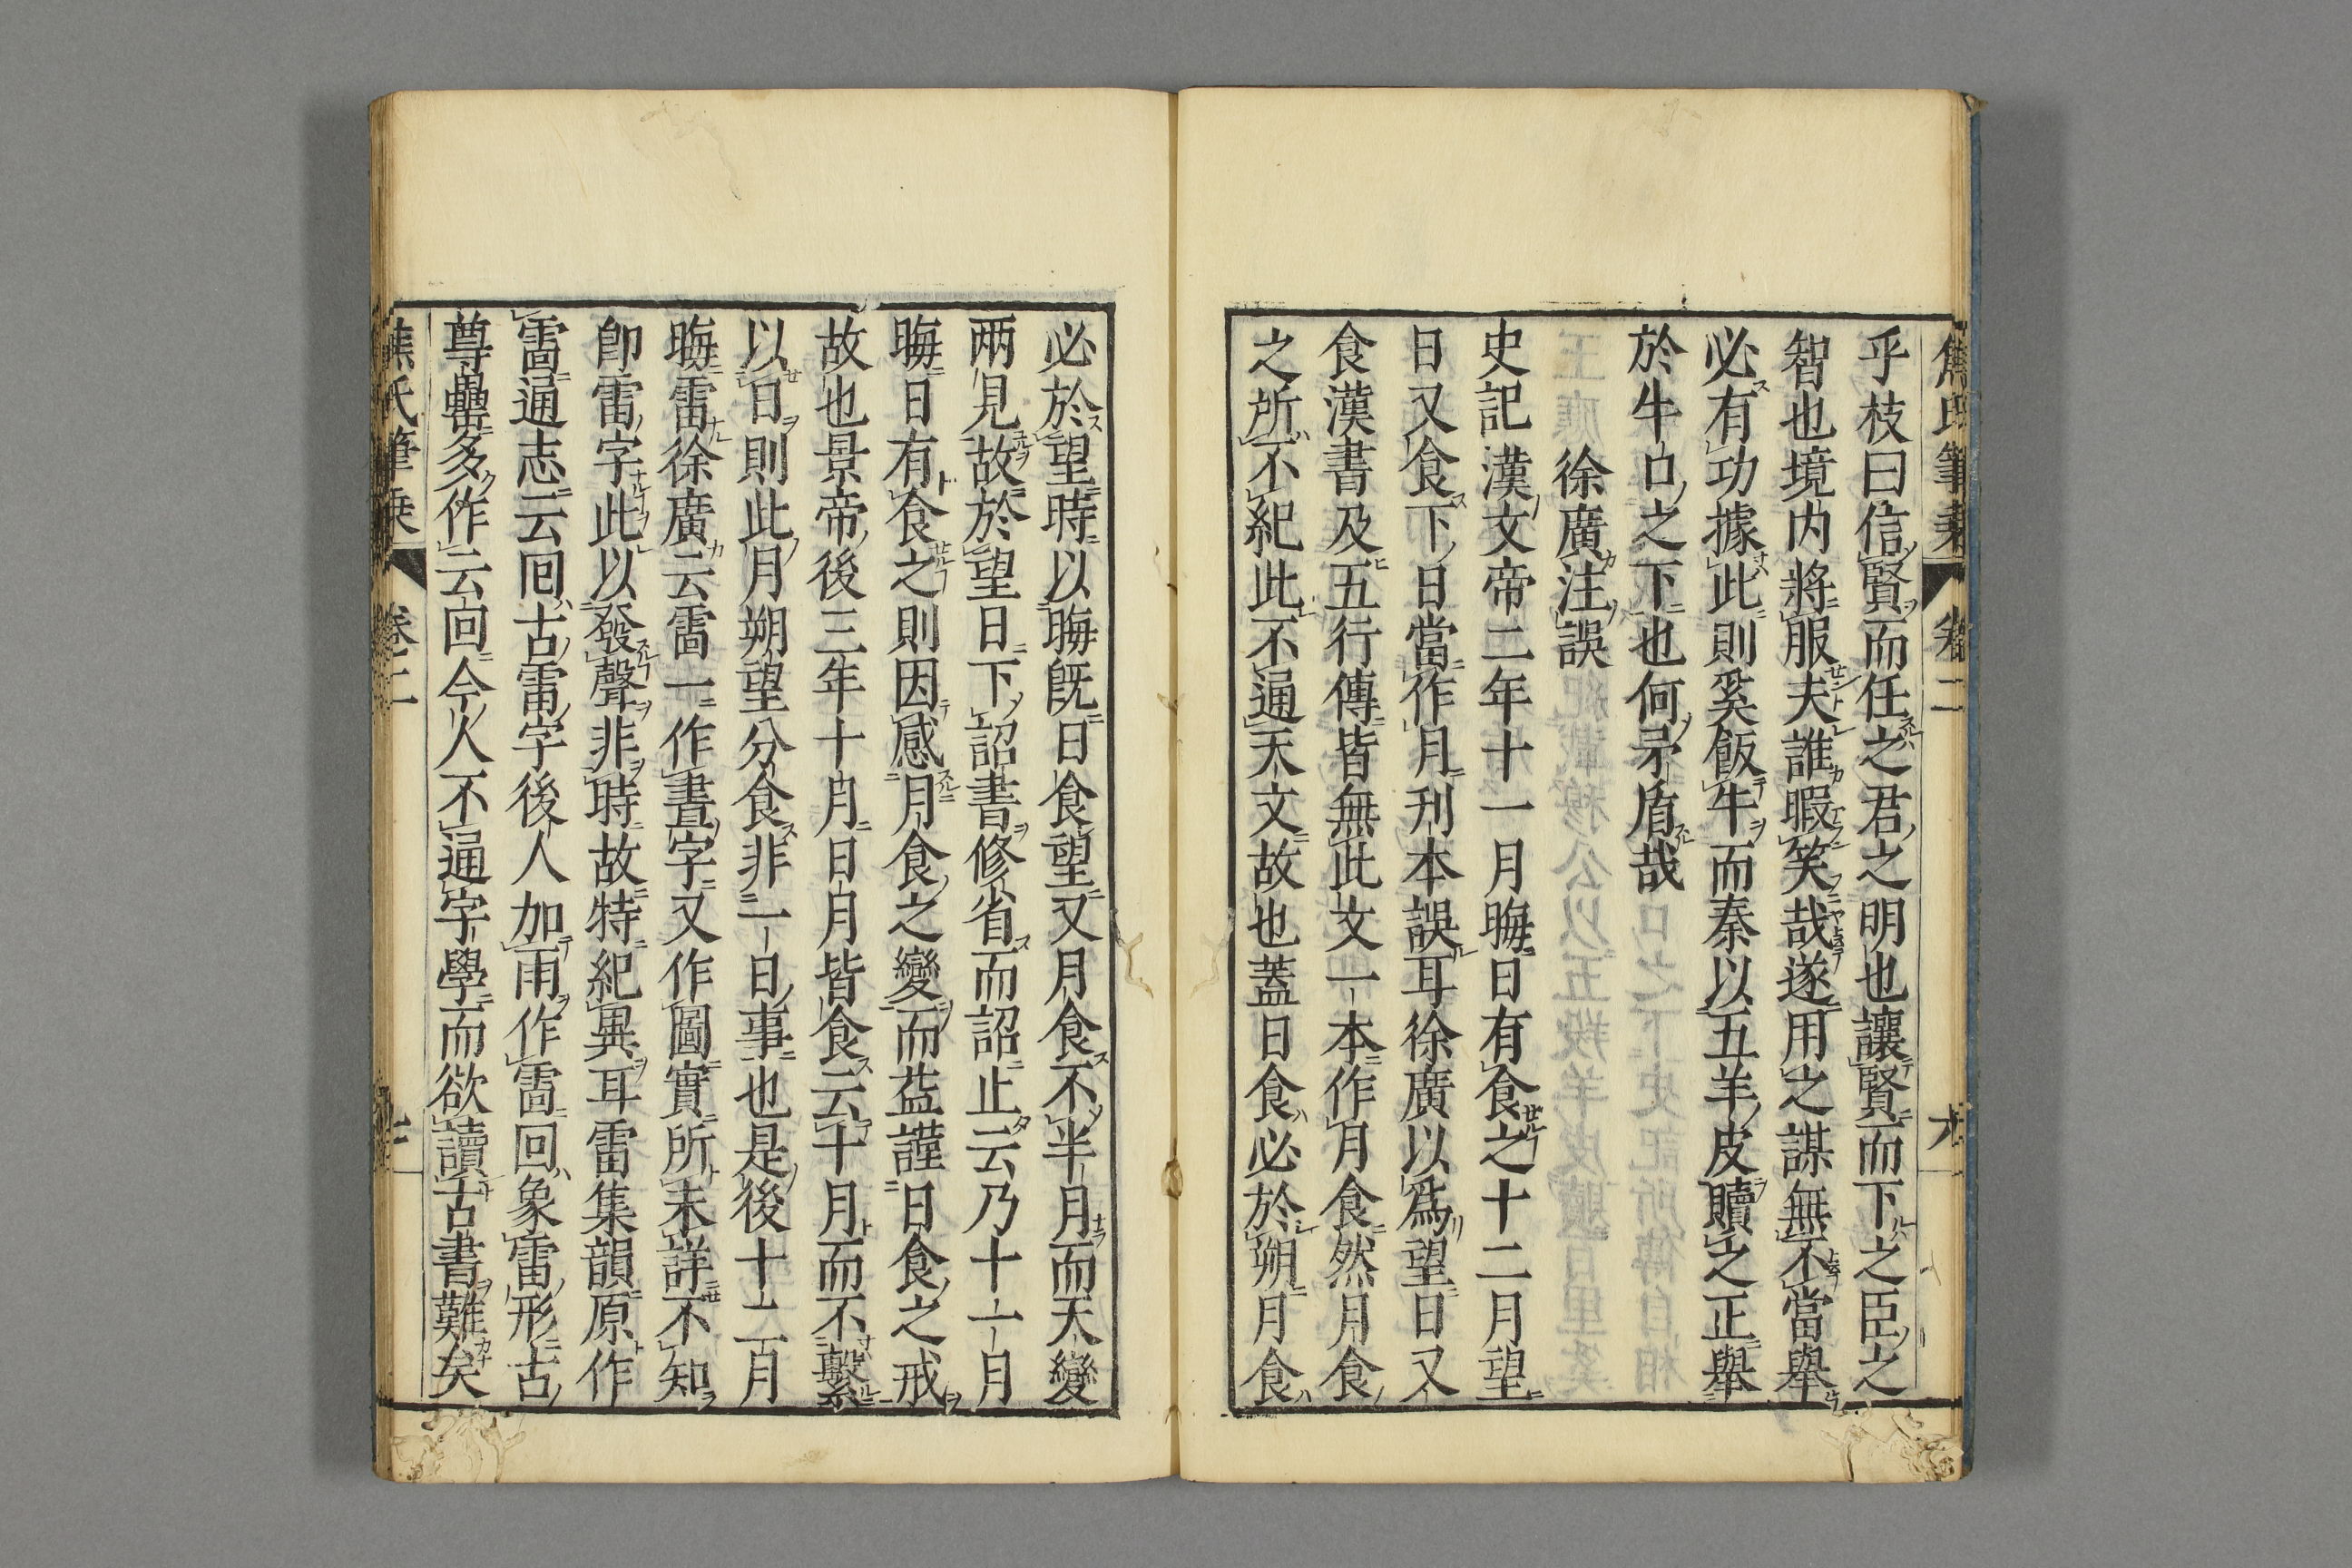 焦氏筆乗 卷二
乎枝曰信賢而任之君之明也讓賢而下之臣之
智也境内將服夫誰暇笑哉遂用之謀無不當舉
必有功據此則奚飯牛而秦以五羊皮贖之正舉
於牛口之下也何矛盾哉
徐廣注誤
史記漢文帝二年十一月晦日有食之十二月望
日又食下日當作月刊本誤耳徐廣以爲望日又
食漢書及五行傳皆無此文一本作月食然月食
之所不紀此不通天文故也蓋日食必於朔月食
必於望時以晦既日食望又月食不半月而天變
两見故於望日下詔書修省而詔止云乃十一月
晦日有食之則因感月食之變而益謹日食之戒
故也景帝後三年十月日月皆食云十月而不繫
以日則此月朔望分食非一日事也是後十二月
晦雷徐廣云雷一作晝字又作圖實所未詳不知
卽雷字此以發聲非時故特紀異耳雷集韻原作
畾通志云囘古雷字後人加雨作雷回象雷形古
尊罍多作云回今人不通字學而欲讀古書難矣
焦氏筆乗 卷二